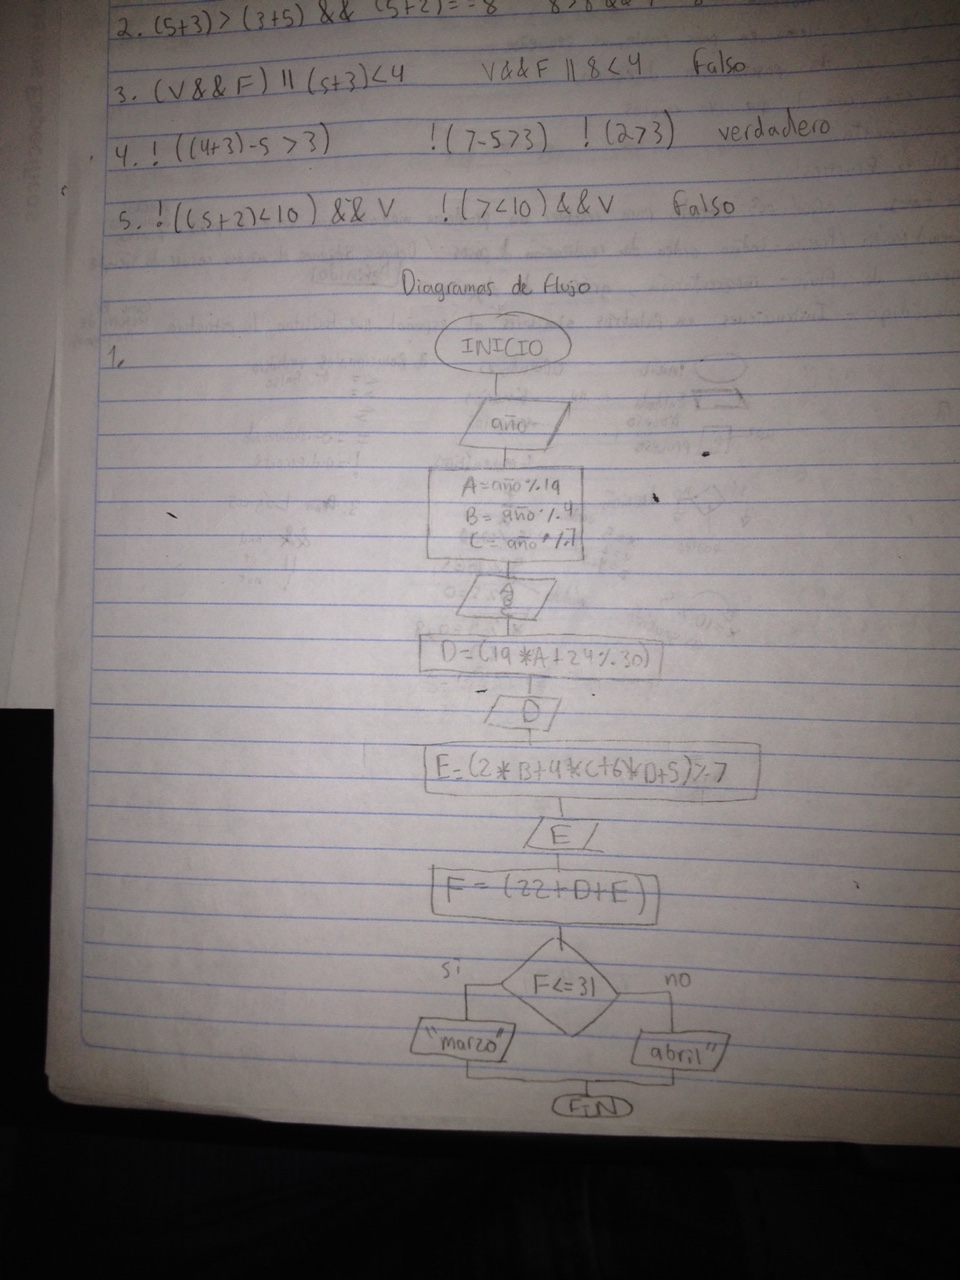 2. (5+3) > (3+5) && (5+2)==8
3. (V && F) || (5+3)<4 V&&F || 8<4 Falso
4. ! ((4+3)-5 >3) !(7-5>3) !(2>3) verdadero
5. !((5+2)<10) && V !(7<10)&&V Falso
Diagramas de flujo
1.
INICIO
año
A=año%19
B=año%4
C=año%7
A
B
C
D=(19*A+24%30)
D
E=(2*B+4*C+6*D+5)%7
E
F=(22+D+E)
F<=31
si
no
"marzo"
abril"
FIN